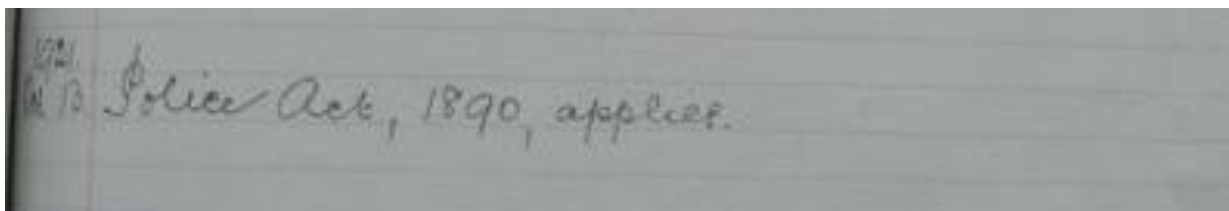 Police Act, 1890, applies.